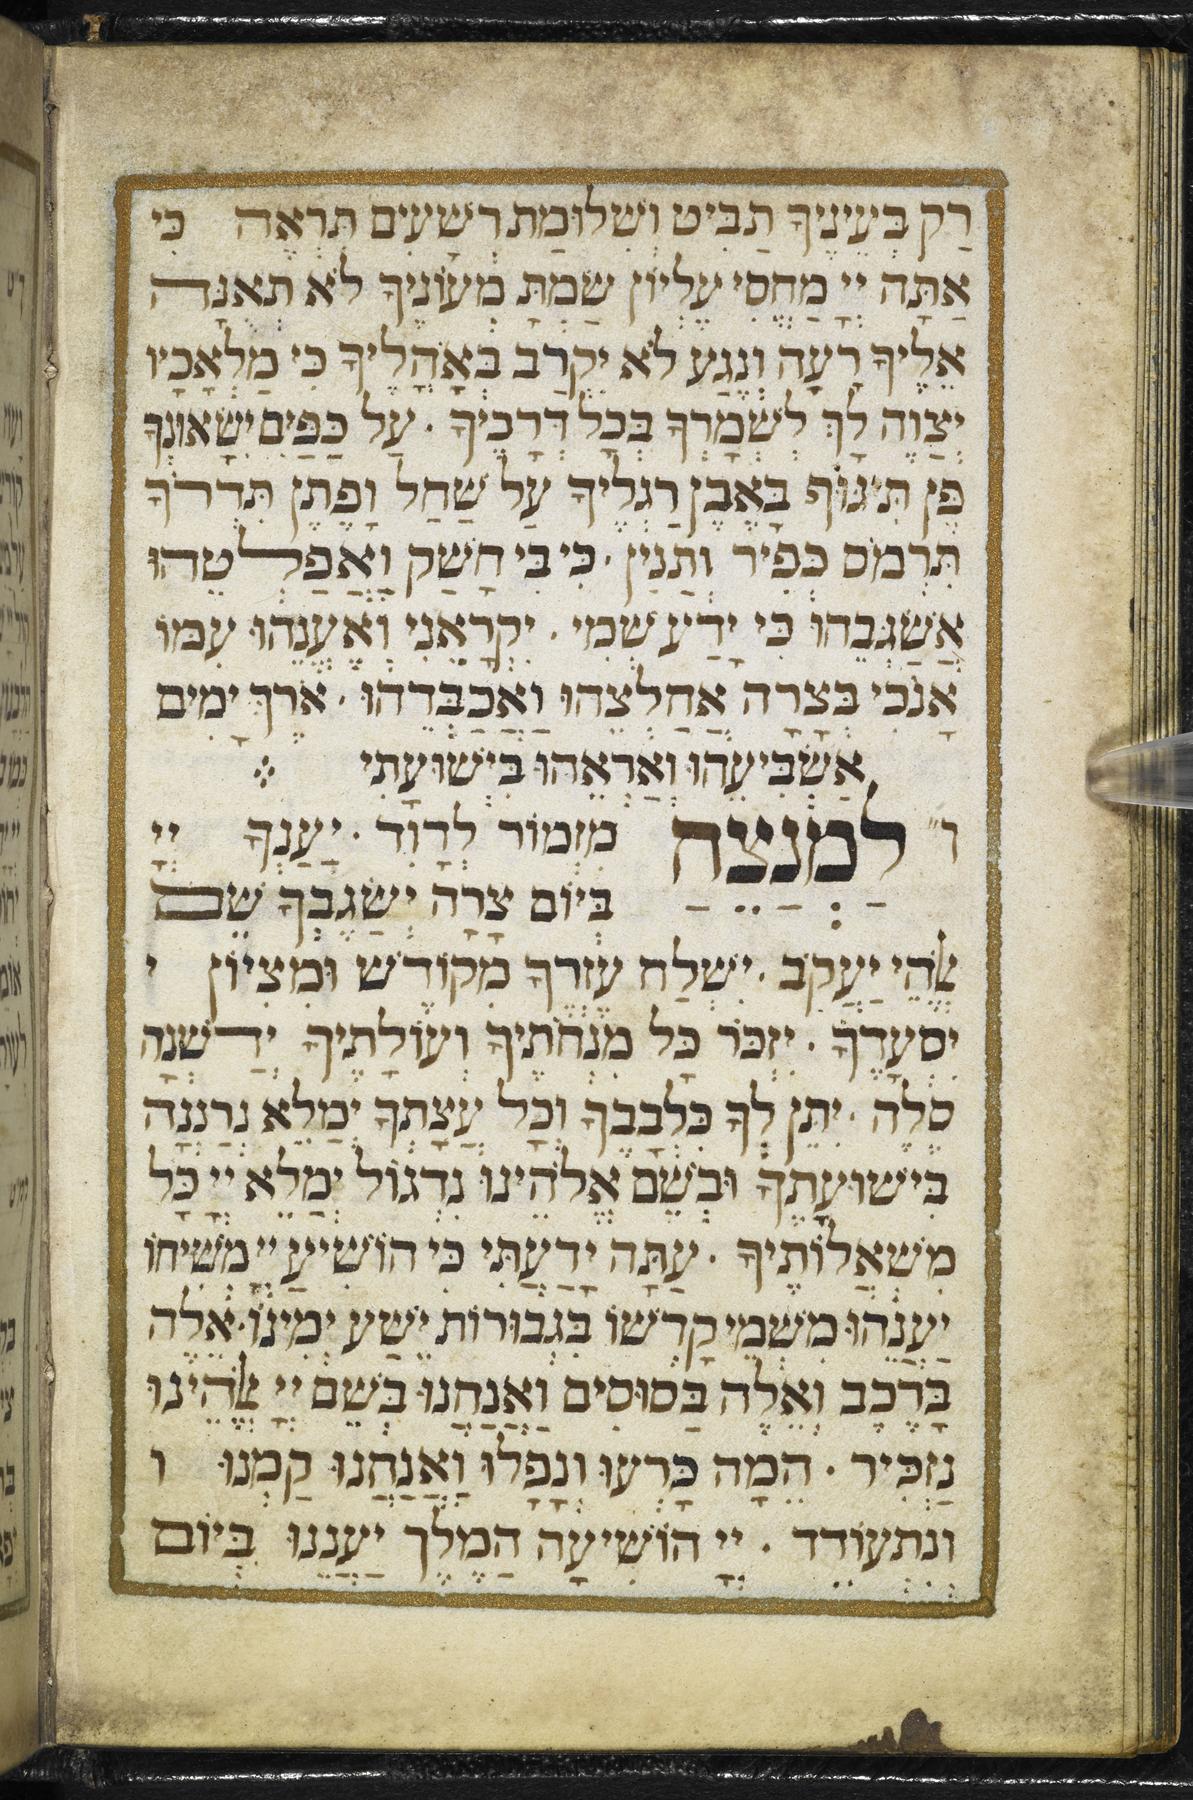 רַק בְּעֵינֶיךָ תַבִּיט וְשִׁלּוּמַת רְשָׁעִים תִּרְאֶה כִּי
אַתָּה יְיָ מַחְסִי עֶלְיוֹן שַׂמְתָּ מְעוֹנֶיךָ לֹא תְאֻנֶּה
אֵלֶיךָ רָעָה וְנֶגַע לֹא יִקְרַב בְּאָהֳלֶיךָ כִּי מַלְאָכָיו
יְצַוֶּה לָךְ לִשְׁמָרְךָ בְּכָל דְּרָכֶיךָ · עַל כַּפַּיִם יִשָּׂאוּנְךָ
פֶּן תִּיגּוֹף בָּאֶבֶן רַגְלֶיךָ עַל שַׁחַל וָפֶתֶן תִּדְרֹךָ
תִּרְמֹס כְּפִיר וְתַנִּין · כִּי בִי חָשַׁק וַאֲפַלְּטֵהוּ
אֲשַׂגְּבֵהוּ כִּי יָדַע שְׁמִי · יִקְרָאֵנִי וְאֶעֱנֵהוּ עִמּוֹ
אָנֹכִי בְּצָרָה אֲחַלְּצֵהוּ וַאֲכַבְּדֵהוּ · אֹרֶךְ יָמִים
אַשְׂבִּיעֵהוּ וְאַרְאֵהוּ בִּישׁוּעָתִי
ו״ לַמְנַצֵּחַ מִזְמוֹר לְדָוִד · יַעַנְךָ יְיָ
בְּיוֹם צָרָה יְשַׂגֶּבְךָ שֵׁם
ﭏהֵי יַעֲקֹב · יִשְׁלַח עֶזְרְךָ מִקּוֹדֶשׁ וּמִצִּיּוֹן י
יִסְעָדֶךָּ · יִזְכֹּר כָּל מִנְחֹתֶיךָ וְעוֹלָתֶיךָ יְדַשְּׁנָה
סֶלָה · יִתֵּן לְךָ כִּלְבָבֶךָ וְכָל עֲצָתְךָ יְמַלֵּא נְרַנְּנָה
בִּישׁוּעָתֶךָ וּבְשֵׁם אֱלֹהֵינוּ נִדְגּוֹל יְמַלֵּא יְיָ כָּל
מִשְׁאֲלוֹתֶיךָ · עַתָּה יָדַעְתִּי כִּי הוֹשִׁיעַ יְיָ מְשִׁיחוֹ
יַעֲנֵהוּ מִשְּׁמֵי קָדְשׁוֹ בִּגְבוּרוֹת יֵשַׁע יְמִינוֹ · אֵלֶּה
בָרֶכֶב וְאֵלֶּה בַסּוּסִים וַאֲנַחְנוּ בְּשֵׁם יְיָ ﭏהֵינוּ
נַזְכִּיר · הֵמָּה כָּרְעוּ וְנָפָלוּ וַאֲנַחְנוּ קַמְנוּ ו
וַנִּתְעוֹדֵד · יְיָ הוֹשִׁיעָה הַמֶּלֶךְ יַעֲנֵנוּ בְּיוֹם